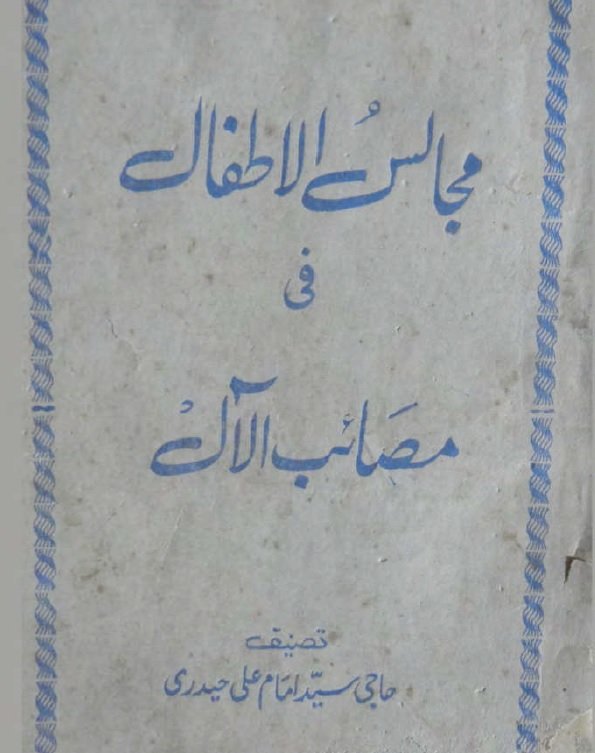 مجالسُ الاطفال
فی
مصَائب الآلْ
تصنیف
حاجی سیّد امَام علی حیدری